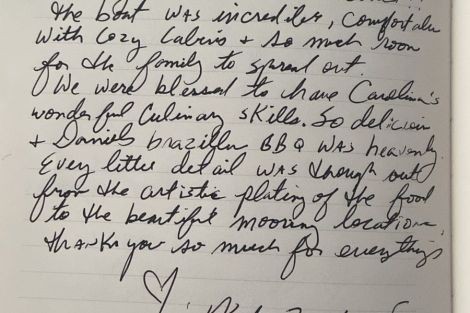 the boat was incredible, comfortable
with cozy cabins + so much room
for the family to spread out.
We were blessed to have Carolina's
wonderful culinary skills. So delicious
+ Daniel's brazilian BBQ was heavenly.
Every little detail was though out
from the artistic plating of the food
to the beautiful mooring locations.
thank you so much for everything